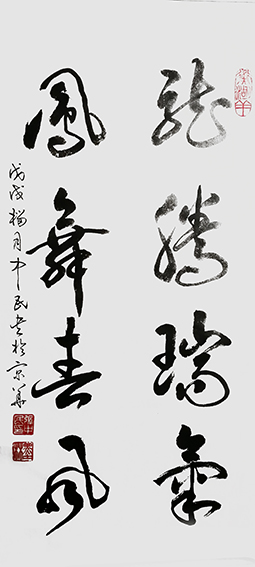 龍騰瑞氣
鳳舞春風
戊戌楊月中民書於京華